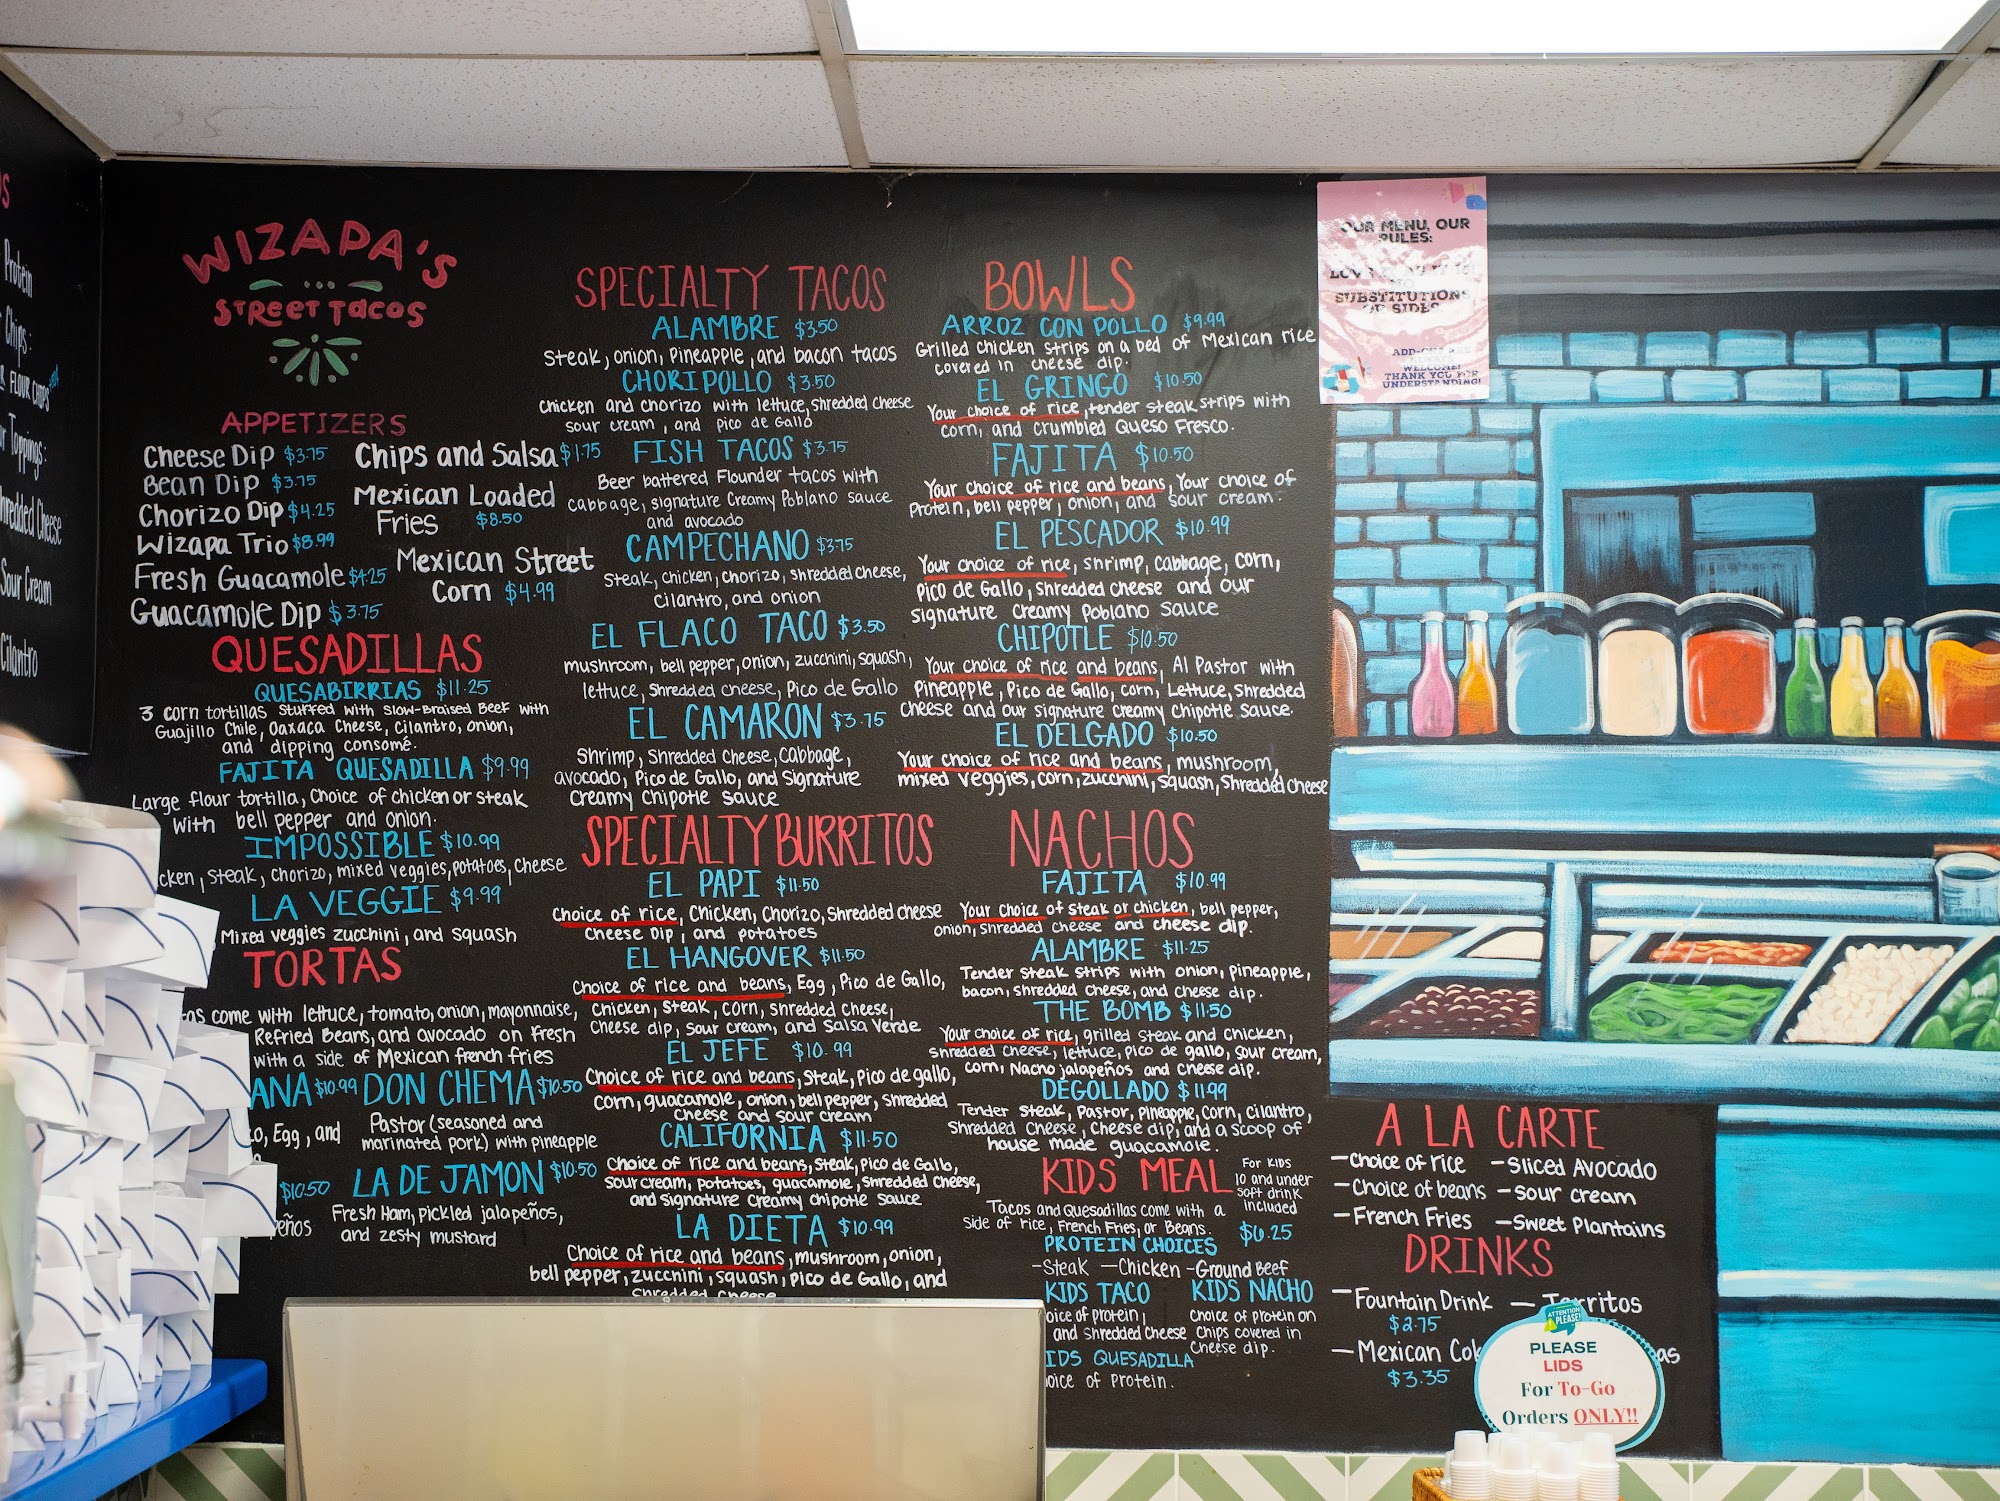 Protein
Chips:
FLOUR CHIPS
Toppings:
Shredded Cheese
Sour Cream
Cilantro
WIZAPA'S
STREET TACOS
APPETIZERS
Cheese Dip $3.75
Bean Dip $3.75
Chorizo Dip $4.25
Wizapa Trio $8.99
Fresh Guacamole $4.25
Guacamole Dip $3.75
Chips and Salsa $1.75
Mexican Loaded
Fries $8.50
Mexican Street
Corn $4.99
QUESADILLAS
QUESABIRRIAS $11.25
3 corn tortillas stuffed with slow-braised Beef with
Guajillo Chile, Oaxaca Cheese, cilantro, onion,
and dipping consomé.
FAJITA QUESADILLA $9.99
Large flour tortilla, Choice of chicken or steak
with bell pepper and onion.
IMPOSSIBLE $10.99
cken, steak, chorizo, mixed veggies, potatoes, cheese
LA VEGGIE $9.99
Mixed veggies zucchini, and squash
TORTAS
as come with lettuce, tomato, onion, mayonnaise,
Refried Beans, and avocado on fresh
with a side of Mexican french fries
ANA $10.99
o, Egg, and
$10.50
eños
DON CHEMA $10.50
Pastor (seasoned and
marinated pork) with pineapple
LA DE JAMON $10.50
Fresh Ham, pickled jalapeños,
and zesty mustard
SPECIALTY TACOS
ALAMBRE $3.50
Steak, onion, Pineapple, and bacon tacos
CHORIPOLLO $3.50
Chicken and chorizo with lettuce, shredded cheese
sour cream, and pico de Gallo
FISH TACOS $3.75
Beer battered Flounder tacos with
cabbage, signature Creamy Poblano sauce
and avocado
CAMPECHANO $3.75
Steak, chicken, chorizo, shredded cheese,
cilantro, and onion
EL FLACO TACO $3.50
mushroom, bell pepper, onion, zucchini, squash,
lettuce, shredded cheese, Pico de Gallo
EL CAMARON $3.75
Shrimp, Shredded Cheese, Cabbage,
avocado, Pico de Gallo, and Signature
Creamy Chipotle Sauce
SPECIALTY BURRITOS
EL PAPI $11.50
Choice of rice, Chicken, Chorizo, Shredded cheese
Cheese Dip, and potatoes
EL HANGOVER $11.50
Choice of rice and beans, Egg, Pico de Gallo,
Chicken, Steak, corn, shredded cheese,
cheese dip, sour cream, and Salsa Verde
EL JEFE $10.99
Choice of rice and beans, Steak, Pico de gallo,
corn, guacamole, onion, bell pepper, shredded
cheese and sour cream
CALIFORNIA $11.50
Choice of rice and beans, Steak, Pico de Gallo,
sour cream, potatoes, guacamole, shredded cheese,
and signature creamy chipotle sauce
LA DIETA $10.99
Choice of rice and beans, mushroom, onion,
bell pepper, zucchini, squash, Pico de Gallo, and
shredded cheese
BOWLS
ARROZ CON POLLO $9.99
Grilled chicken strips on a bed of Mexican rice
covered in cheese dip.
EL GRINGO $10.50
Your choice of rice, tender steak strips with
corn, and crumbled Queso Fresco.
FAJITA $10.50
Your choice of rice and beans, Your choice of
Protein, bell pepper, onion, and sour cream.
EL PESCADOR $10.99
Your choice of rice, shrimp, cabbage, corn,
Pico de Gallo, shredded cheese and our
signature creamy poblano sauce
CHIPOTLE $10.50
Your choice of rice and beans, Al Pastor with
Pineapple, Pico de Gallo, corn, Lettuce, Shredded
cheese and our signature creamy chipotle sauce.
EL DELGADO $10.50
Your choice of rice and beans, mushroom,
mixed veggies, corn, zucchini, squash, Shredded cheese
NACHOS
FAJITA $10.99
Your choice of steak or chicken, bell pepper,
onion, shredded cheese and cheese dip.
ALAMBRE $11.25
Tender steak strips with onion, pineapple,
bacon, shredded cheese, and cheese dip.
THE BOMB $11.50
Your choice of rice, grilled steak and chicken,
shredded cheese, lettuce, pico de gallo, sour cream,
corn, Nacho jalapeños and cheese dip.
DEGOLLADO $11.99
Tender steak, Pastor, pineapple, corn, cilantro,
shredded cheese, cheese dip, and a scoop of
house made guacamole.
KIDS MEAL
For kids
10 and under
soft drink
included
Tacos and Quesadillas come with a
side of rice, French Fries, or Beans. $6.25
PROTEIN CHOICES
-Steak -Chicken -Ground Beef
KIDS TACO
oice of protein,
and shredded cheese
KIDS NACHO
choice of protein on
chips covered in
cheese dip.
IDS QUESADILLA
oice of Protein.
OUR MENU, OUR
RULES:
SUBSTITUTIONS
OR SIDES
WELCOME!
THANK YOU FOR
UNDERSTANDING!
A LA CARTE
-Choice of rice -Sliced Avocado
-Choice of beans -sour cream
-French Fries -Sweet Plantains
DRINKS
-Fountain Drink
$2.75
-Mexican Cok
$3.35
as
ATTENTION
PLEASE!
PLEASE
LIDS
For To-Go
Orders ONLY!!